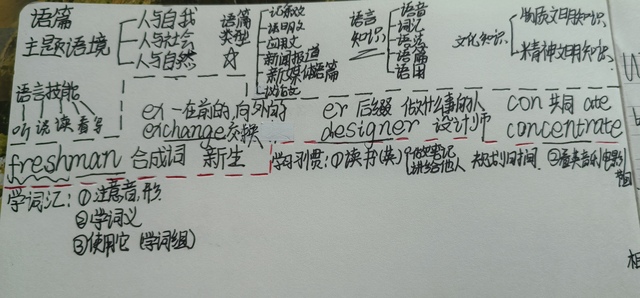 语篇
主题语境
人与自我
人与社会
人与自然
语篇
类型
☆
记叙文
说明文
应用文
新闻报道
新媒体语篇
议论文
语言
知识
语音
词汇
语法
语篇
语用
文化知识
物质文明知识
精神文明知识
语言技能
听 说 读 看 写
ex 一在前的,向外的
exchange 交换
er 后缀 做什么事的人
designer 设计师
con 共同 ate
concentrate
freshman 合成词 新生
学习习惯:①读书(英)
做笔记
讲给别人
规划时间
学词汇:①注意音,形
②学词义
③使用它(学词组)
相